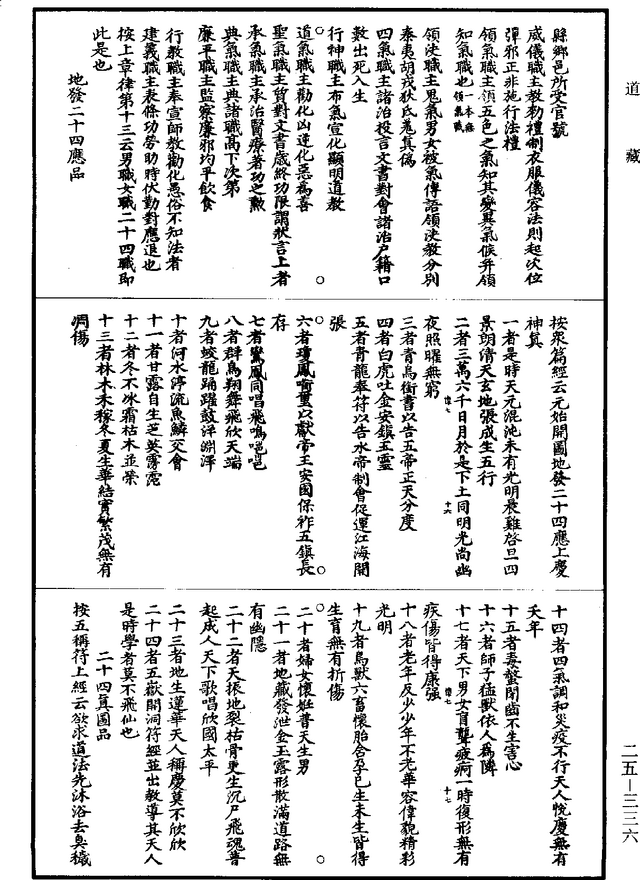 道藏
縣鄉邑所受官號
威儀職主教勑禮制衣服儀容法則起次位
彈邪正非施行法禮
領氣職主領五色之氣知其變異氣候并領
知氣職也一本無領氣職
領決職主鬼氣男女被氣傳語領決教分別
秦夷胡戎狄氐羗真偽
四氣職主諸治投言文書對會諸治戶籍口
數出死入生
行神職主布氣宣化顯明道教
道氣職主勸化凶逆化惡為善
聖氣職主質對文書歲終功限謂狀言上者
承氣職主承治醫療著功之勲
典氣職主典諸職高下次第
廉平職主監察廉邪均平飲食
行教職主奉宣師教勸化愚俗不知法者
建義職主表條功勞助時伏勤對應退也
按上章律第十三云男職女職二十四職即
此是也
地發二十四應品
按衆篇經云元始開圖地發二十四應上慶
神真
一者是時天元混沌未有光明晨雞啓旦四
景朗清天玄地張成生五行
二者三萬六千日月於是下土同明光尚幽
夜照曜無窮
三者青鳥銜書以告五帝正天分度
四者白虎吐金安鎮五靈
五者青龍奉符以告水帝制會促運江海開
張
六者瓊鳳喻璽以獻帝王安國保祚五鎮長
存
七者鸞鳳同唱飛鳴嗈嗈
八者群鳥翔舞飛欣天端
九者蛟龍踊躍鼓洋淵澤
十者河水停流魚鱗交會
十一者甘露自生芝英雱霈
十二者冬不冰霜枯木並榮
十三者林木禾稼冬夏生華結實繁茂無有
凋傷
十四者四氣調和災疫不行天人悅慶無有
夭年
十五者毒螫閉齒不生害心
十六者師子猛獸依人為隣
十七者天下男女盲聾疲痾一時復形無有
疾傷皆得康強
十八者老年反少少年不老華容偉貌精彩
光明
十九者鳥獸六畜懷胎含孕已生未生皆得
生育無有折傷
二十者婦女懷姙普天生男
二十一者地藏發泄金玉露形散滿道路無
有幽隱
二十二者天振地裂枯骨更生沉尸飛魂普
起成人天下歌唱欣國太平
二十三者地生蓮華天人稱慶莫不欣欣
二十四者五嶽開洞符經並出教導其天人
是時學者莫不飛仙也
二十四真圖品
按五稱符上經云欲求道法先沐浴去臭穢
二五—三三六